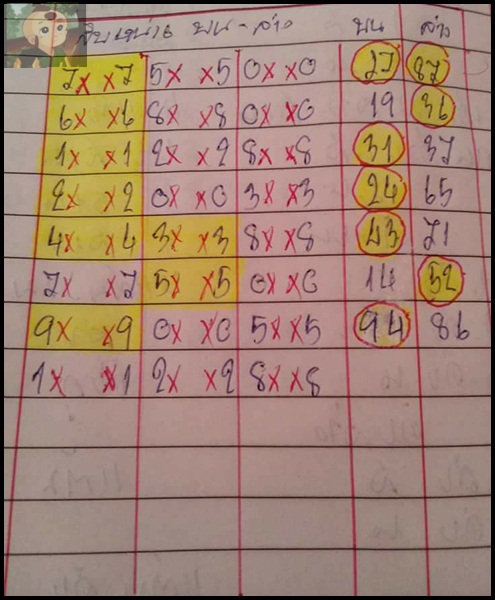 บน - ล่าง บน ล่าง
7x x7 5x x5 0x x0 27 87
6x x6 8x x8 0x x0 19 36
1x x1 2x x2 8x x8 31 37
2x x2 0x x0 3x x3 24 65
4x x4 3x x3 8x x8 43 71
7x x7 5x x5 0x x0 14 52
9x x9 0x x0 5x x5 94 86
1x x1 2x x2 8x x8